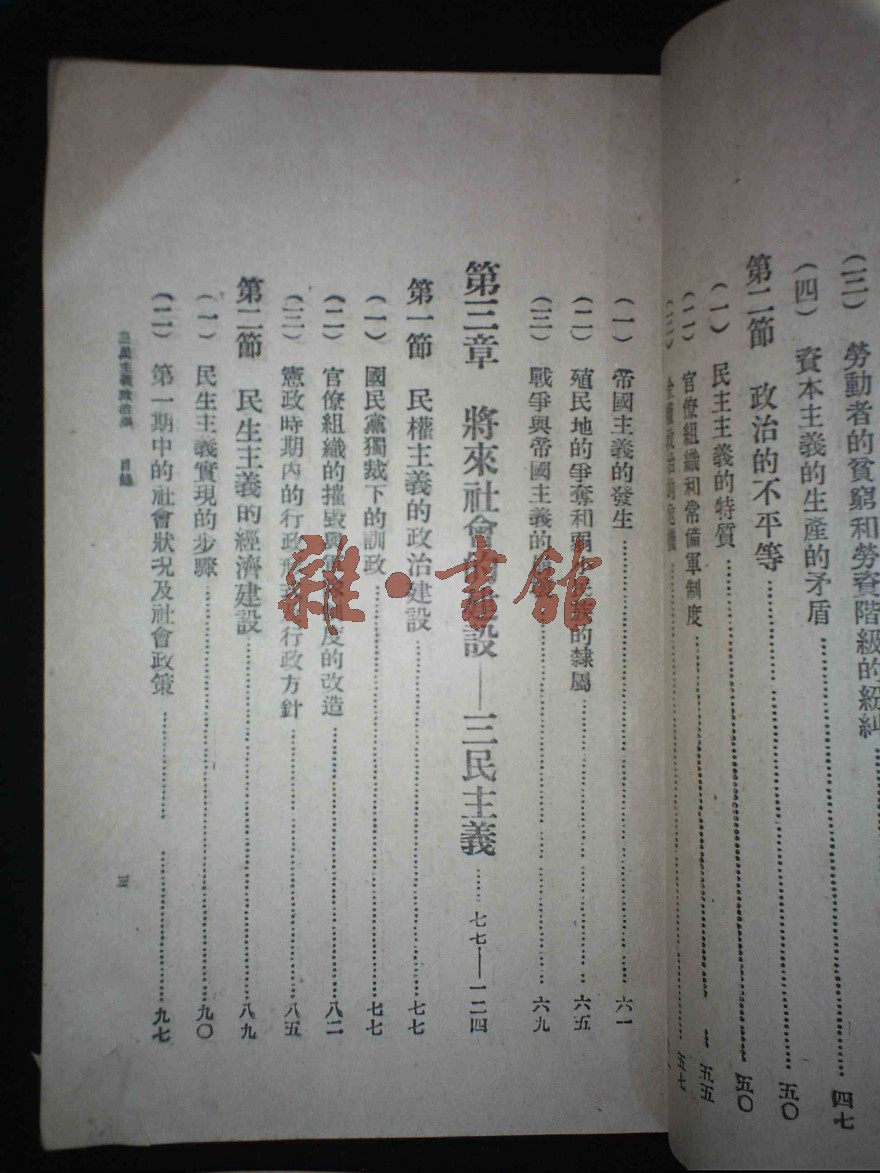 (三) 勞動者的貧窮和勞資階級的紛糾
(四) 資本主義的生產的矛盾……五〇 四七
第二節 政治的不平等……五〇
(一) 民主主義的特質……五〇
(二) 官僚組織和常備軍制度……五五
五七
(一) 帝國主義的發生……六一
(二) 殖民地的爭奪和弱小民族的隸屬……六五
(三) 戰爭與帝國主義的……六九
第三章 將來社會的建設——三民主義……七七——一二四
第一節 民權主義的政治建設……七七
(一) 國民黨獨裁下的訓政……七七
(二) 官僚組織的摧毀與軍隊制度的改造……八二
(三) 憲政時期內的行政……行政方針……八五
第二節 民生主義的經濟建設……八九
(一) 民生主義實現的步驟……九〇
(二) 第一期中的社會狀況及社會政策……九七
三民主義政治學 目錄
三
雜·書館